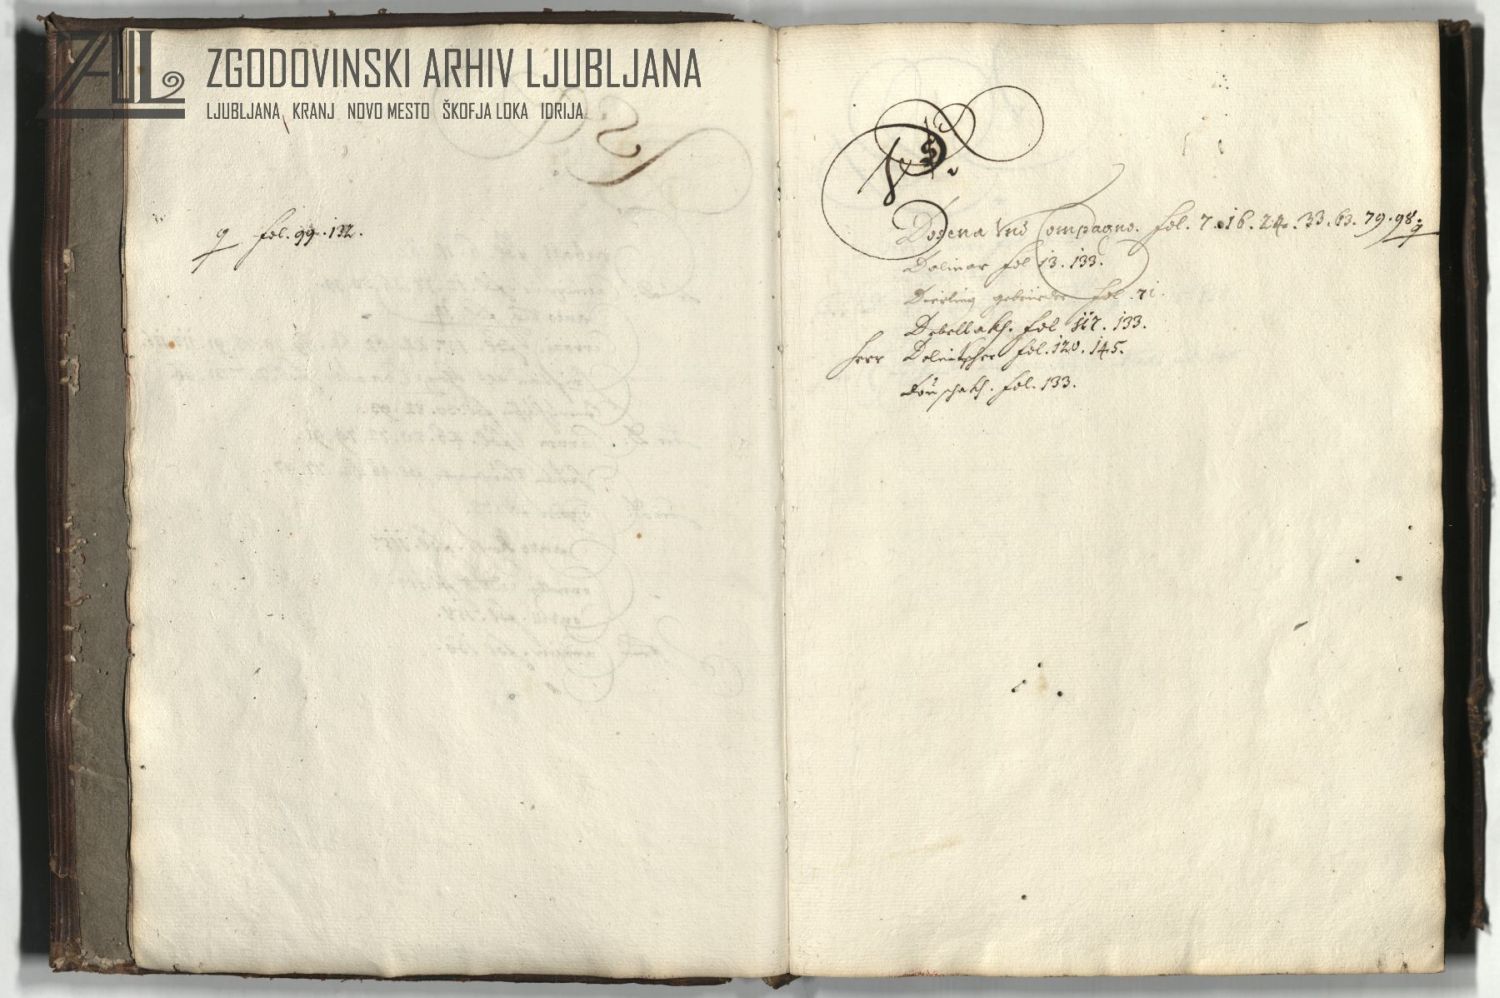 ZGODOVINSKI ARHIV LJUBLJANA
LJUBLJANA KRANJ NOVO MESTO ŠKOFJA LOKA IDRIJA
fol. 99. 132.
D
Dodena und Compagno. fol. 7. 16. 24. 33. 63. 79. 98.
Dolinar fol 13. 133.
gebrüder fol. 71.
Debellakh. fol 117. 133.
Herr fol. 120. 145.
fol. 133.